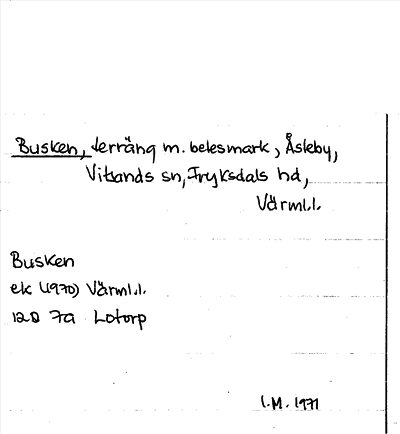 Busken, terräng m. betesmark, Åsleby,
Vitsands sn, Fryksdals hd,
Värml.l.
Busken
ek (1970) Värml.l.
12D 7a Lotorp
I.M. 1971